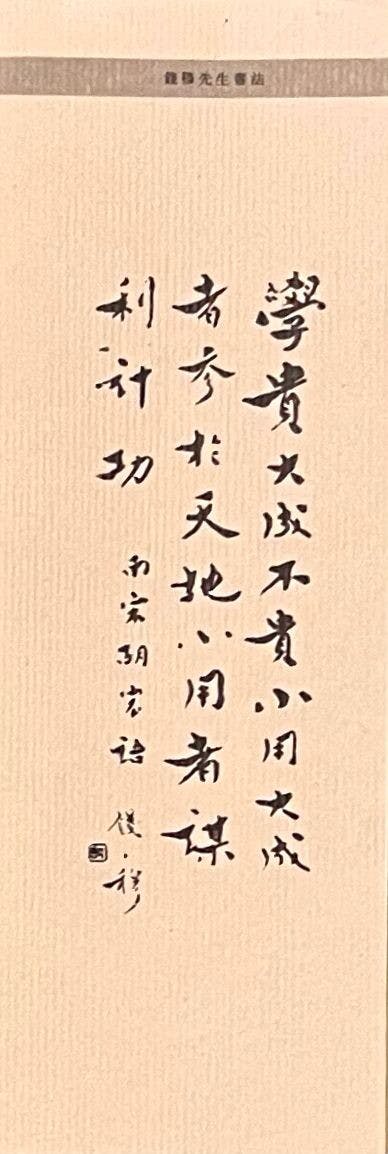 錢穆先生書法
學貴大成不貴小用大成
者參於天地小用者謀
利計功
南宋胡宏語
錢穆